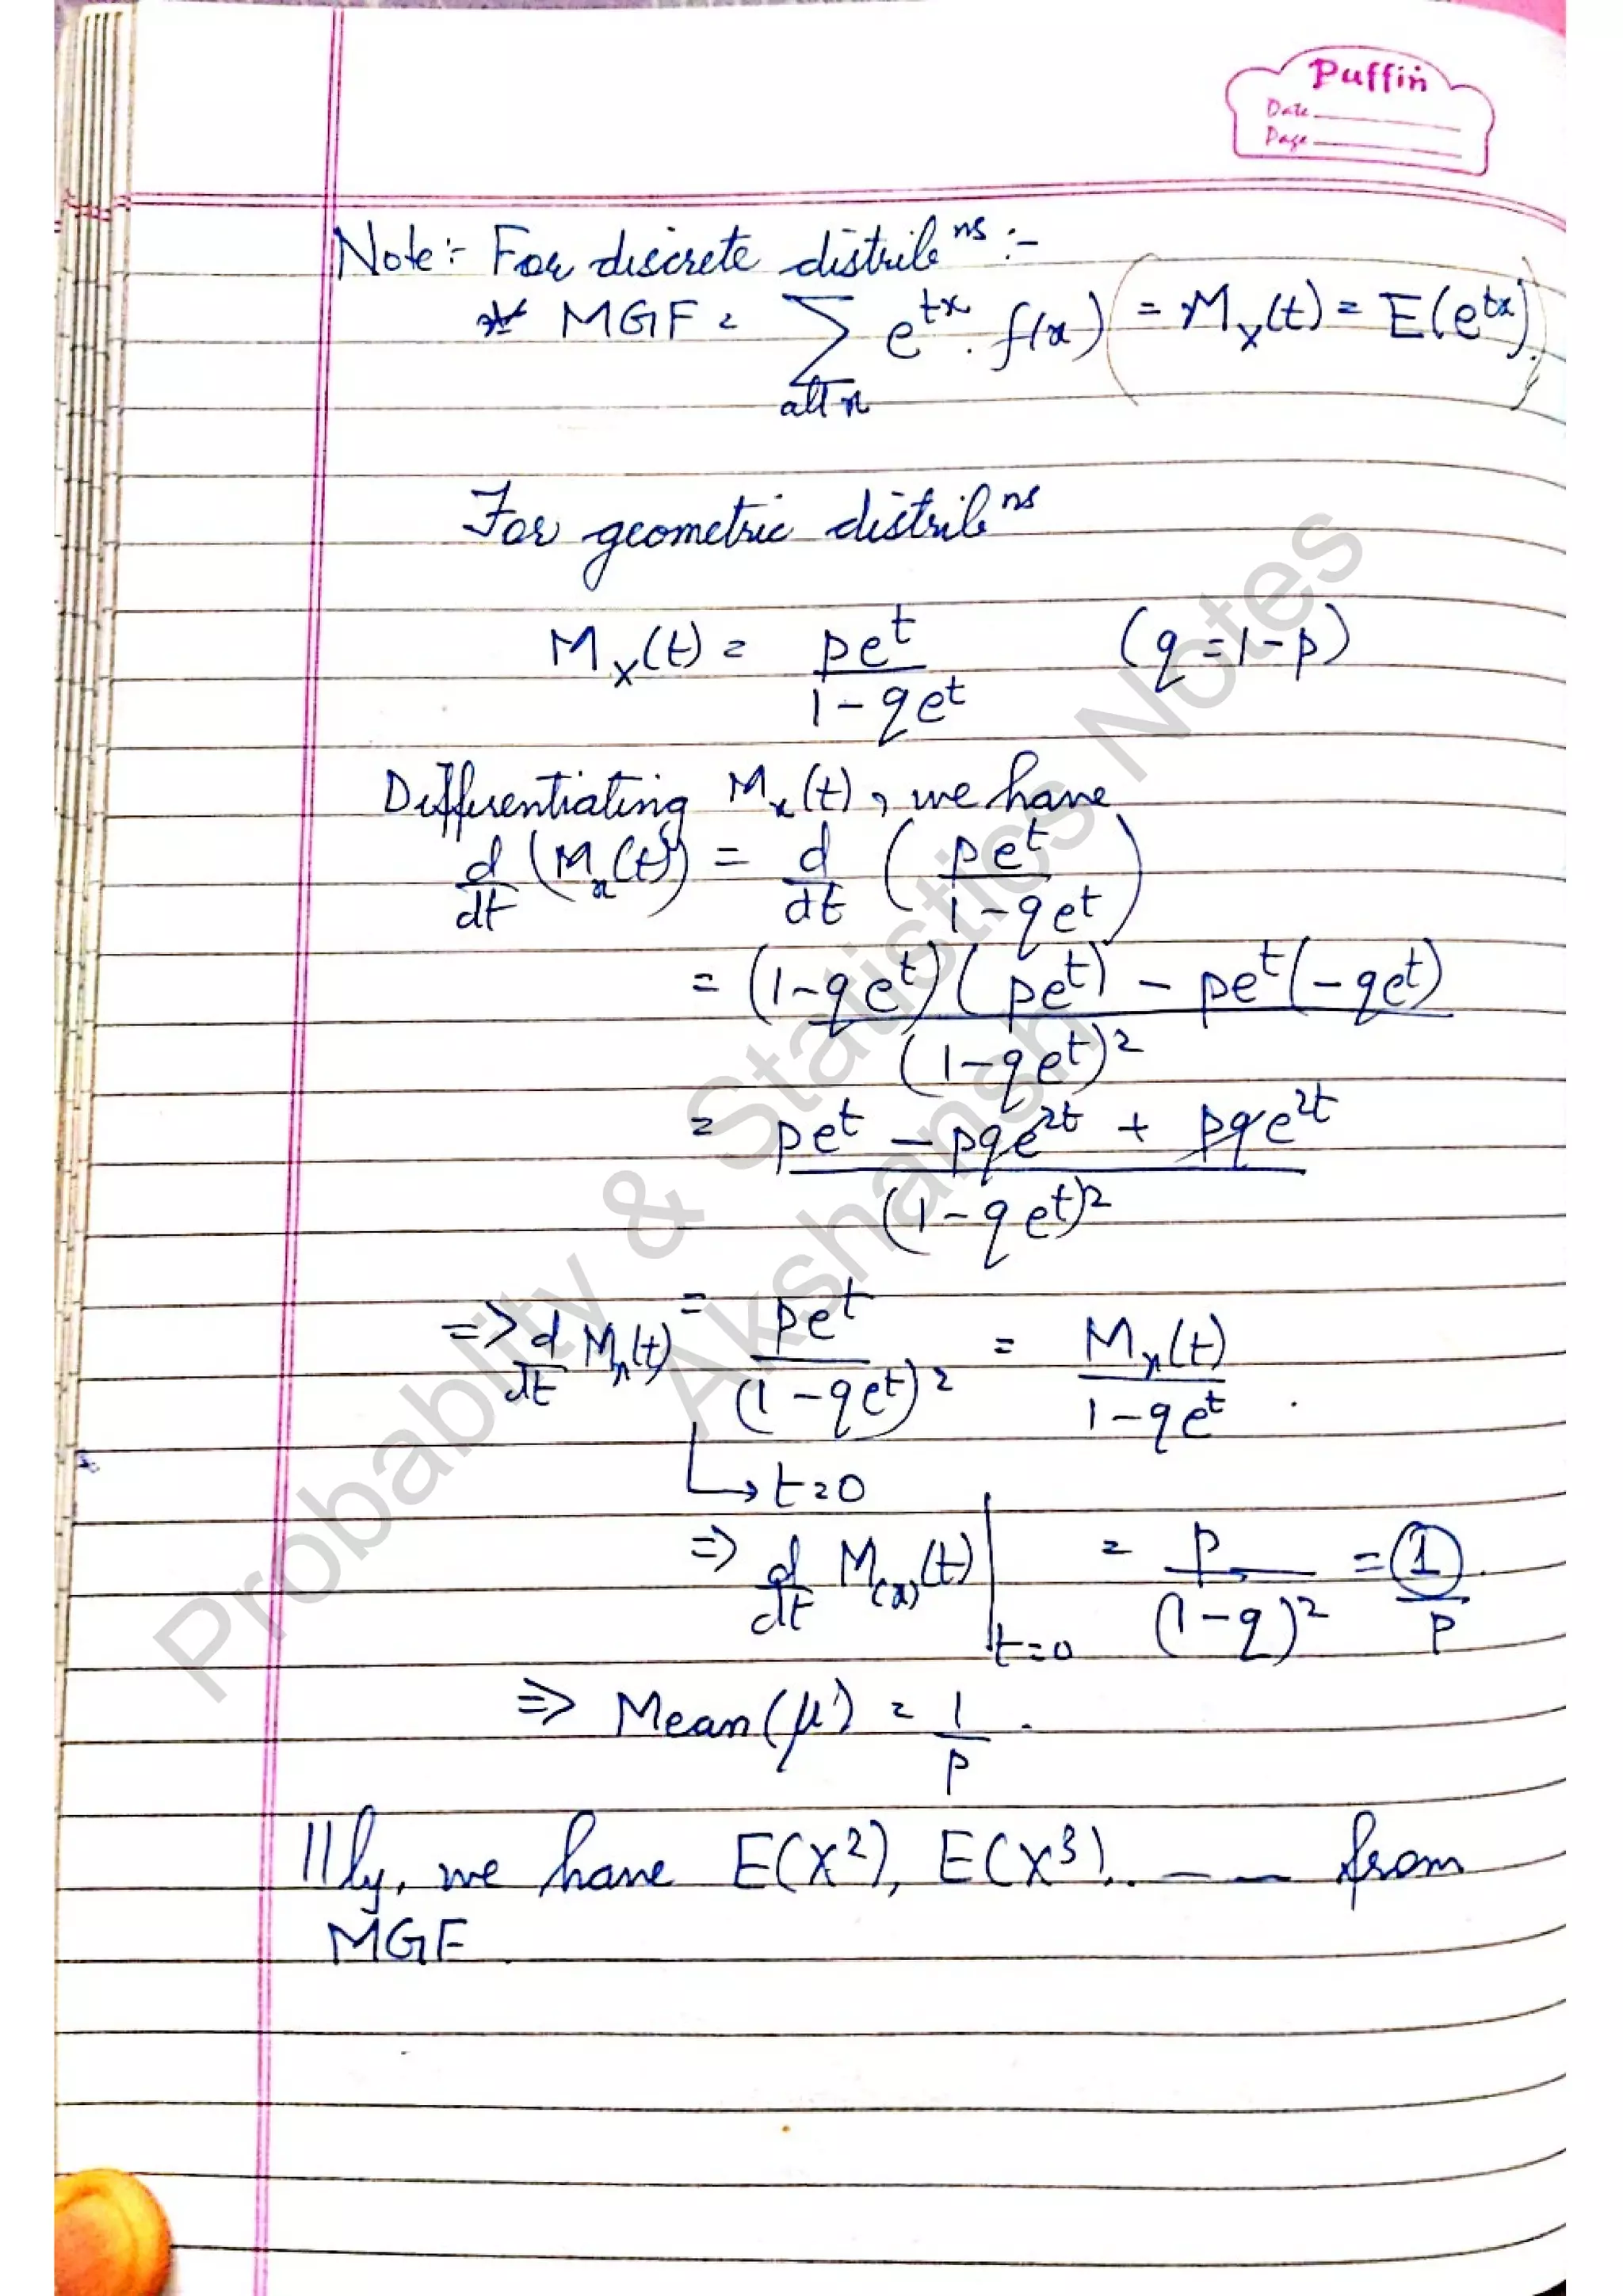 Puffin
Date
Page
Note:- For discrete distrib ns :-
* MGF = ∑ e^tx . f(x) ( = M_X(t) = E(e^tx) ).
all x
For geometric distrib ns
M_X(t) = pe^t / 1-qe^t (q = 1-p)
Differentiating M_x(t), we have
d/dt (M_x(t)) = d/dt ( pe^t / 1-qe^t )
= (1-qe^t)(pe^t) - pe^t(-qe^t) / (1-qe^t)^2
= pe^t - pqe^2t + pqe^2t / (1-qe^t)^2
=> d/dt M_x(t) = pe^t / (1-qe^t)^2 = M_x(t) / 1-qe^t .
↳ t=0
=> d/dt M_(x)(t) | t=0 = p / (1-q)^2 = 1/p .
=> Mean (μ') = 1/p .
||ly, we have E(X^2), E(X^3)..--- from
MGF.
Probablity & Statistics Notes
Akshansh